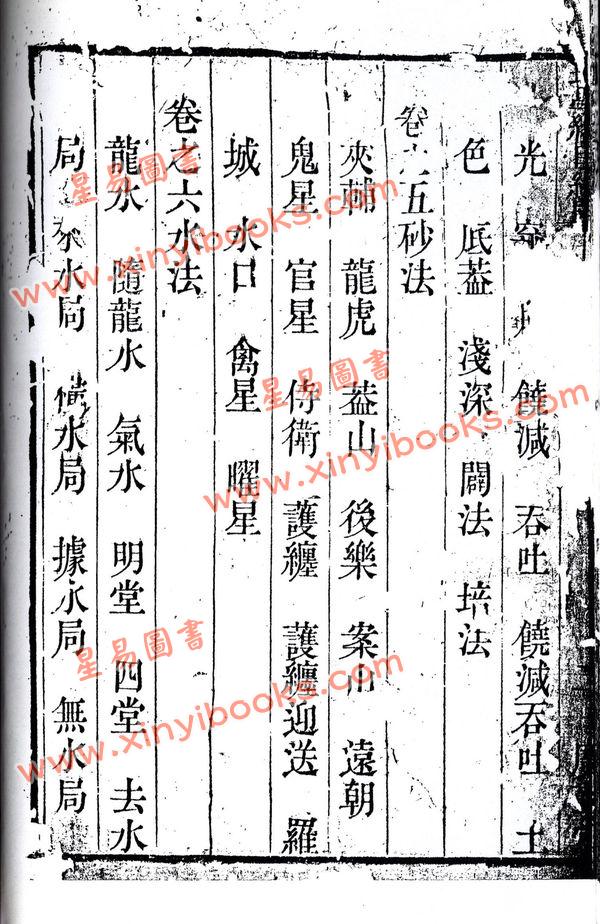 光 穿 饒減 吞吐 饒減吞吐 土
色 底葢 淺深 闢法 培法
卷 五砂法
夾輔 龍虎 葢山 後樂 案山 遠朝
鬼星 官星 侍衛 護纏 護纏迎送 羅
城 水口 禽星 曜星
卷之六水法
龍水 隨龍水 氣水 明堂 四堂 去水
局 水局 橫水局 據水局 無水局
星易圖書
www.xinyibooks.com
星易圖書
www.xinyibooks.com
星易圖書
www.xinyibooks.com